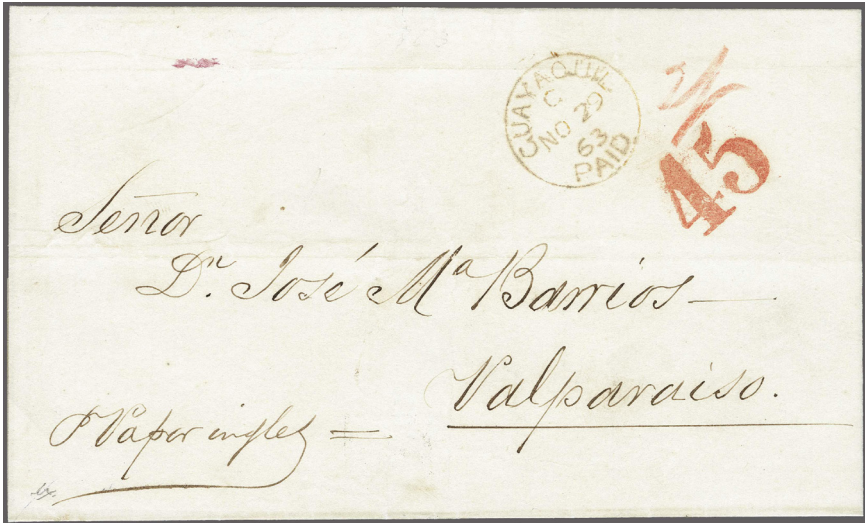 GUAYAQUIL
C
NO 29
63
PAID
1/
45
Señor
Dn. José Ma Barrios
Valparaiso.
p Vapor ingles =